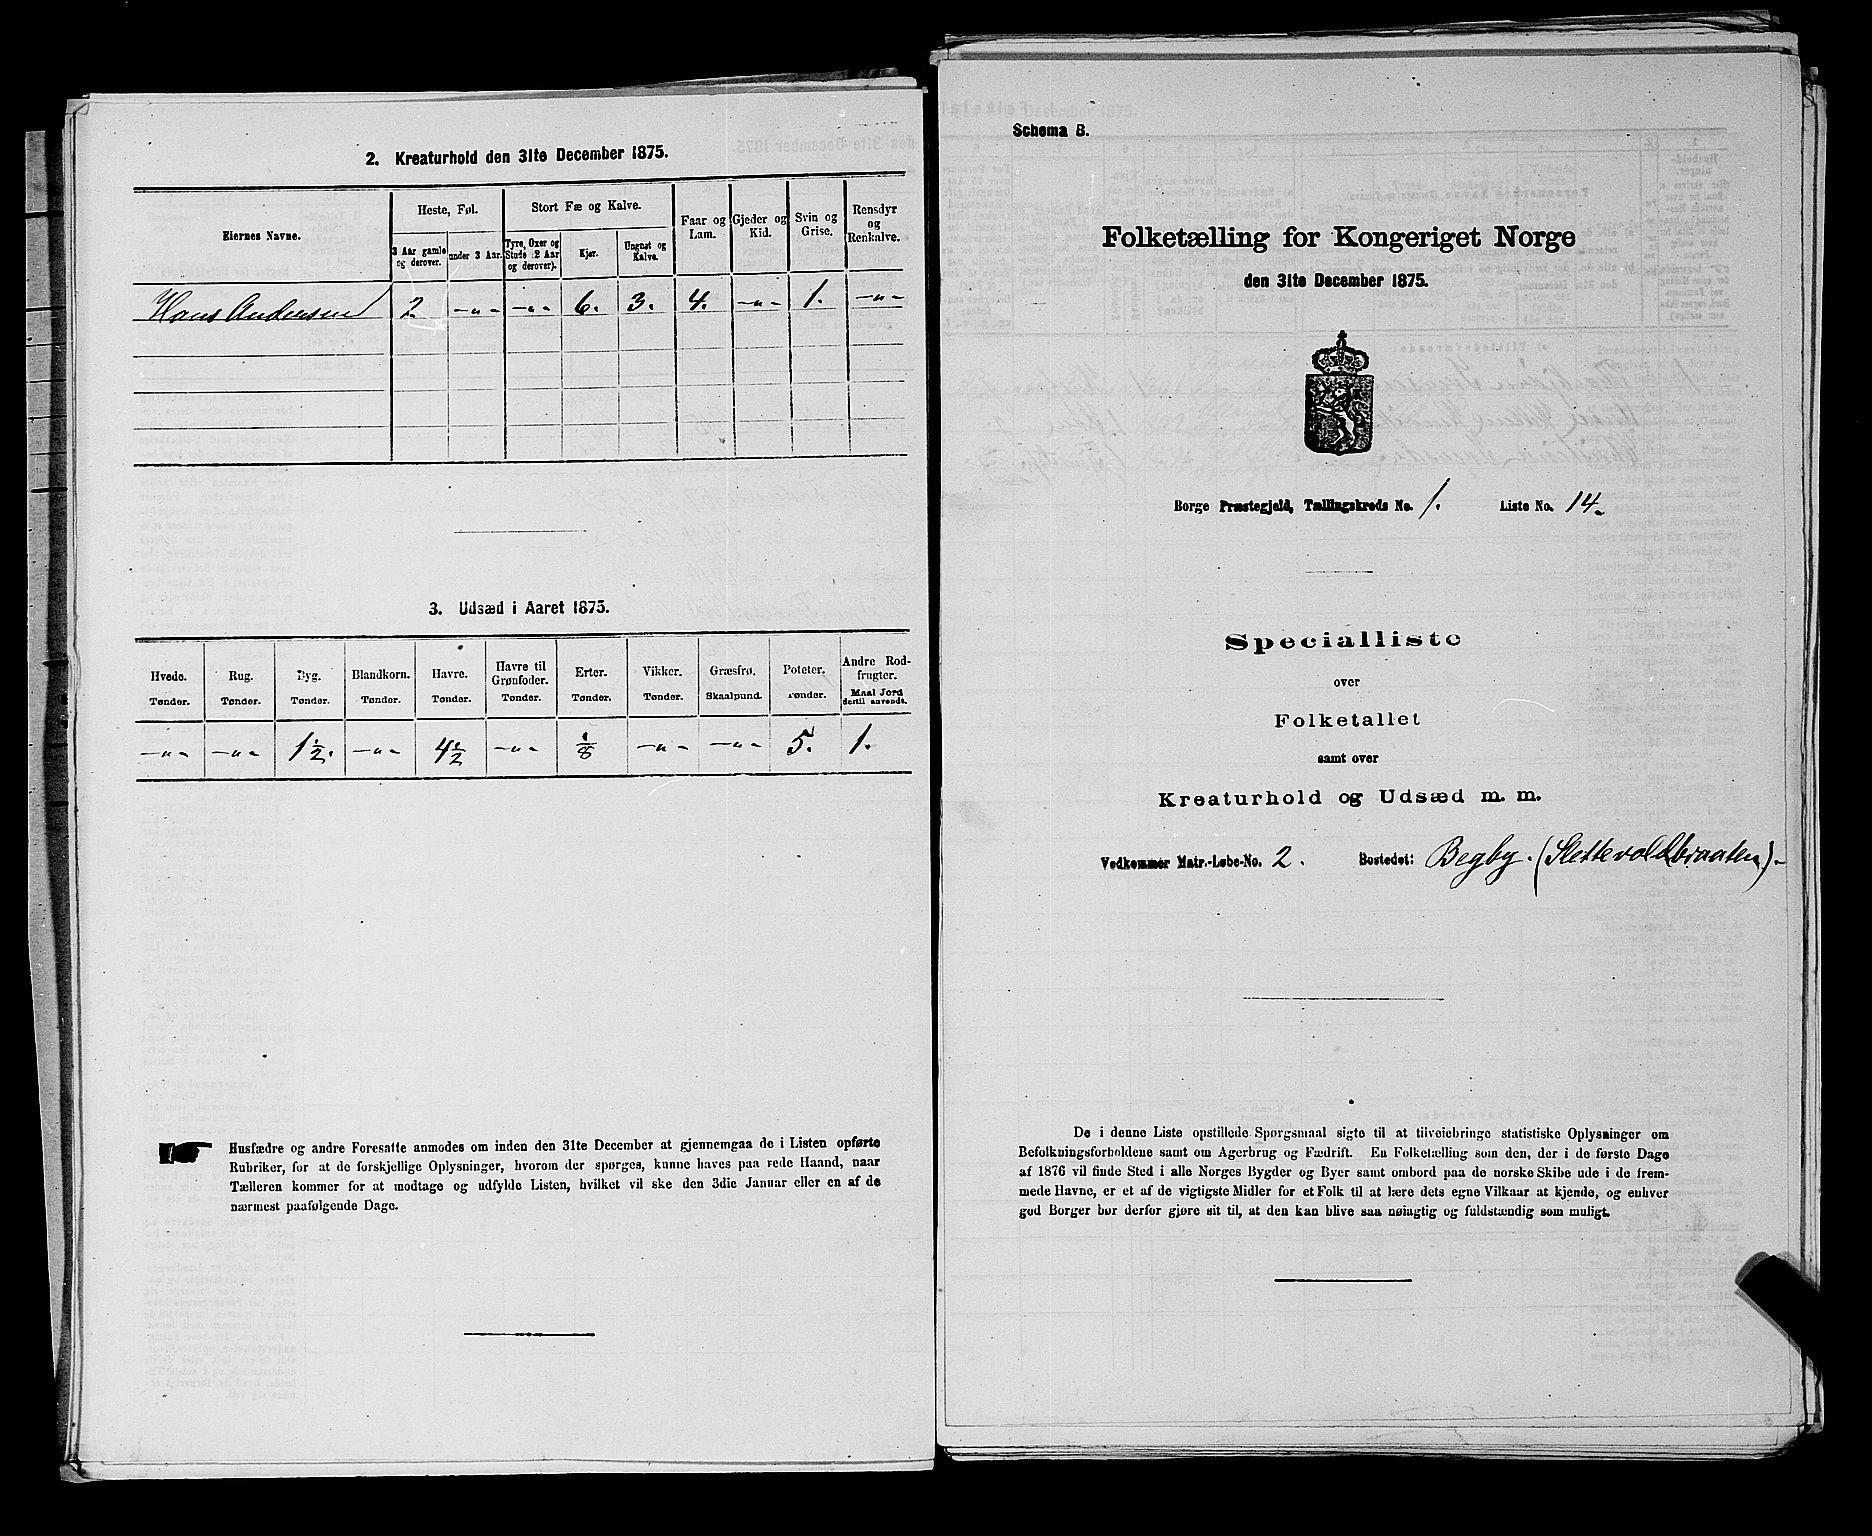 2. Kreaturhold den 31te December 1875.
Eiernes Navne.
Heste, Føl.
Stort Fæ og Kalve.
Faar og Lam.
Gjeder og Kid.
Svin og Grise.
Rensdyr og Renkalve.
3 Aar gamle og derover.
under 3 Aar.
Tyre, Oxer og Stude (2 Aar og derover).
Kjør.
Ungnøt og Kalve.
Hans Andersen 2. -"- -"- 6. 3. 4. -"- 1. -"-
3. Udsæd i Aaret 1875.
Hvede. Rug. Byg. Blandkorn. Havre. Havre til Grønfoder. Erter. Vikker. Græsfrø. Poteter. Andre Rodfrugter.
Tønder. Tønder. Tønder. Tønder. Tønder. Tønder. Tønder. Tønder. Skaalpund. Tønder. Maal Jord dertil anvendt.
-"- -"- 1 1/2. -"- 4 1/2 -"- 1/8 -"- -"- 5. 1.
Husfædre og andre Foresatte anmodes om inden den 31te December at gjennemgaa de i Listen opførte
Rubriker, for at de forskjellige Oplysninger, hvorom der spørges, kunne haves paa rede Haand, naar
Tælleren kommer for at modtage og udfylde Listen, hvilket vil ske den 3die Januar eller en af de
nærmest paafølgende Dage.
Schema B.
Folketælling for Kongeriget Norge
den 31te December 1875.
Borge Præstegjeld, Tællingskreds No. 1. Liste No. 14.
Specialliste
over
Folketallet
samt over
Kreaturhold og Udsæd m. m.
Vedkommer Matr.-Løbe-No. 2. Bostedet: Begby. (Slettevoldbraaten).
De i denne Liste opstillede Spørgsmaal sigte til at tilveiebringe statistiske Oplysninger om
Befolkningsforholdene samt om Agerbrug og Fædrift. En Folketælling som den, der i de første Dage
af 1876 vil finde Sted i alle Norges Bygder og Byer samt ombord paa de norske Skibe ude i de frem-
mede Havne, er et af de vigtigste Midler for et Folk til at lære dets egne Vilkaar at kjende, og enhver
god Borger bør derfor gjøre sit til, at den kan blive saa nøiagtig og fuldstændig som muligt.